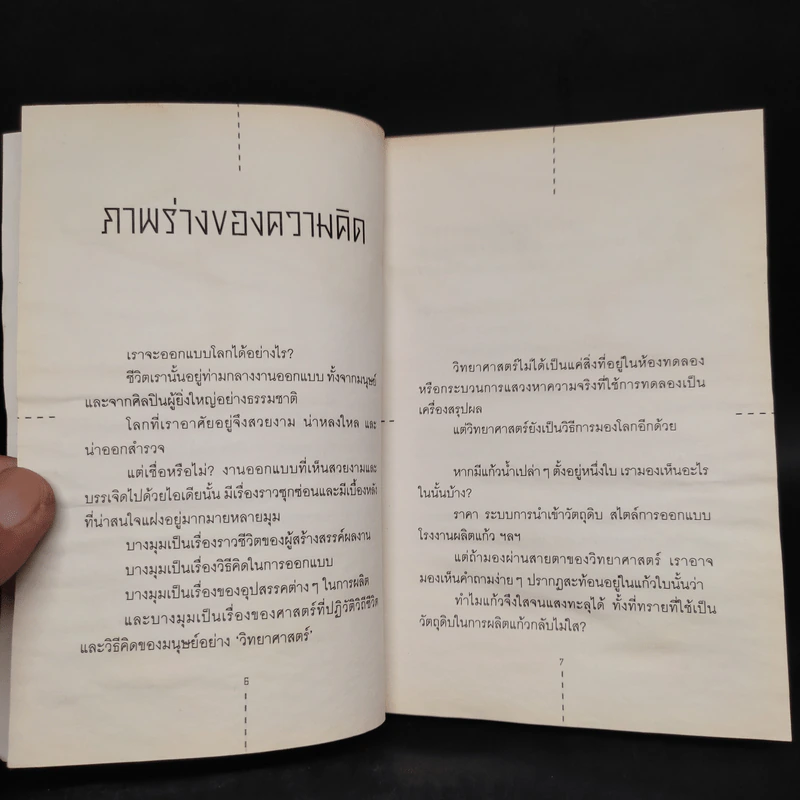 ภาพร่างของความคิด
เราจะออกแบบโลกได้อย่างไร?
ชีวิตเรานั้นอยู่ท่ามกลางงานออกแบบ ทั้งจากมนุษย์
และจากศิลปินผู้ยิ่งใหญ่อย่างธรรมชาติ
โลกที่เราอาศัยอยู่จึงสวยงาม น่าหลงใหล และ
น่าออกสำรวจ
แต่เชื่อหรือไม่? งานออกแบบที่เห็นสวยงามและ
บรรเจิดไปด้วยไอเดียนั้น มีเรื่องราวซุกซ่อนและมีเบื้องหลัง
ที่น่าสนใจแฝงอยู่มากมายหลายมุม
บางมุมเป็นเรื่องราวชีวิตของผู้สร้างสรรค์ผลงาน
บางมุมเป็นเรื่องวิธีคิดในการออกแบบ
บางมุมเป็นเรื่องของอุปสรรคต่างๆ ในการผลิต
และบางมุมเป็นเรื่องของศาสตร์ที่ปฏิวัติวิถีชีวิต
และวิธีคิดของมนุษย์อย่าง 'วิทยาศาสตร์'
6
วิทยาศาสตร์ไม่ได้เป็นแค่สิ่งที่อยู่ในห้องทดลอง
หรือกระบวนการแสวงหาความจริงที่ใช้การทดลองเป็น
เครื่องสรุปผล
แต่วิทยาศาสตร์ยังเป็นวิธีการมองโลกอีกด้วย
หากมีแก้วน้ำเปล่าๆ ตั้งอยู่หนึ่งใบ เรามองเห็นอะไร
ในนั้นบ้าง?
ราคา ระบบการนำเข้าวัตถุดิบ สไตล์การออกแบบ
โรงงานผลิตแก้ว ฯลฯ
แต่ถ้ามองผ่านสายตาของวิทยาศาสตร์ เราอาจ
มองเห็นคำถามง่ายๆ ปรากฏสะท้อนอยู่ในแก้วใบนั้นว่า
ทำไมแก้วจึงใสจนแสงทะลุได้ ทั้งที่ทรายที่ใช้เป็น
วัตถุดิบในการผลิตแก้วกลับไม่ใส?
7